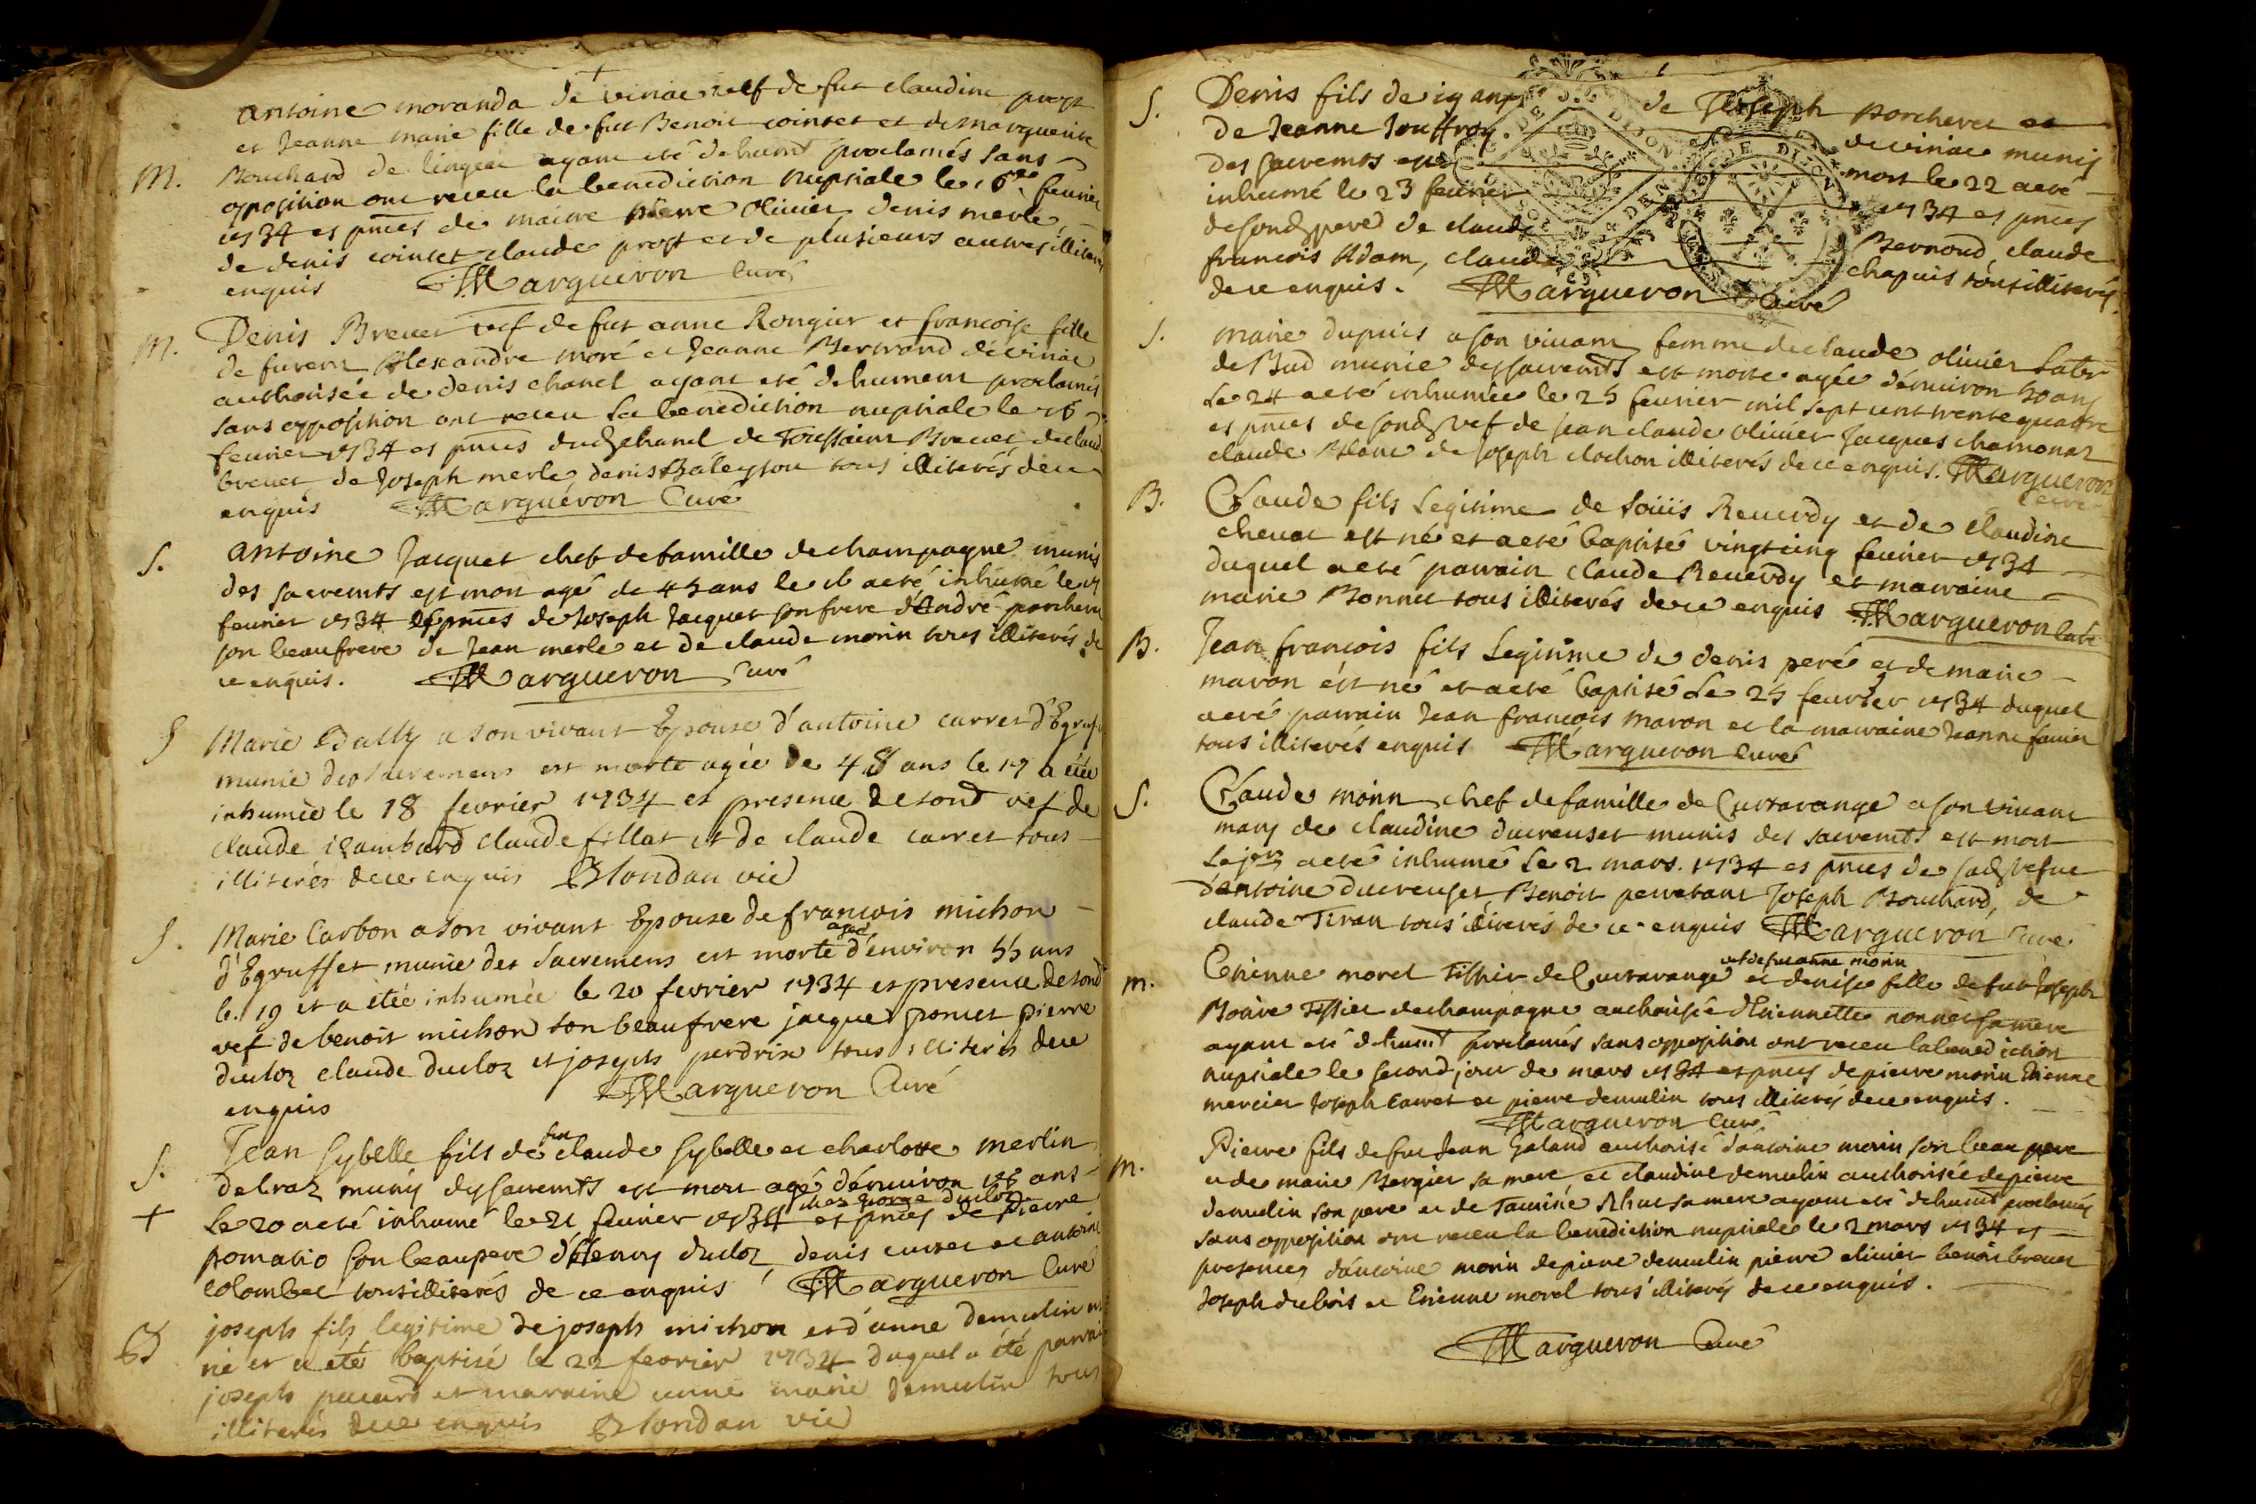 antoine moranda de vinae vef de fut claudine prost
et Jeanne marie fille de fut Benoit cointet et de marguerite
M. Bouchard de lingeac ayant eté dehumt proclamés sans
opposition ont receu la benediction nuptiale le 16me feurier
1734 es pnces de maitre pierre olivier denis merle
de denis cointet claude prost et de plusieurs autres illiterés
enquis Margueron Curé
M. Denis Brevet vef de fut anne Rongier et francoise fille
de furent Alexandre moré et Jeanne Bertrand de vinae
authorisée de denis chanel ayant eté dehument proclamés
sans opposition ont receu la benediction nuptiale le 16
feurier 1734 es pnces dud chanel de Toussaint Brevet de claud
brevet de Joseph merle denis Balaysou tous illiterés de ce
enquis Margueron Curé
S. antoine Jacquet chef de famille de champagne munis
des sacremts est mort agé de 45 ans le 16 a eté inhumé le 17
feurier 1734 es pnces de Joseph Jacquet son frere d'André porcheret
son beaufrere de Jean merle et de claude morin tous illiterés de
ce enquis. Margueron Curé
S Marie Bally a son vivant Epouse d'antoine carret d'Egruffet
munie des sacremens est morte agée de 48 ans le 17 a etée
inhumée le 18 fevrier 1734 es presence de sond vef de
claude izambard claude fillat et de claude carret tous
illiterés de ce enquis Blondan vic
S. Marie Carbon a son vivant Epouse de francois michon
d'Egruffet munie des sacremens est morte agée d'environ 55 ans
le 19 et a etée inhumée le 20 fevrier 1734 es presence de sond
vef de benoit michon son beaufrere jacque poncet pierre
ducloz claude ducloz et joseph perdrix tous illiterés de ce
enquis Margueron Curé
S. Jean Sybelle fils de fut claude Sybelle et charlotte merlin
delraz muny des sacremts est mort agé d'enuiron 26 ans
+ le 20 a eté inhumé le 21 feurier 1734 chez george ducloz es pnces de pierre
pomatio son beaupere d'etienny ducloz denis curtet et antoine
colombet tous illiterés de ce enquis Margueron Curé
B joseph fils legitime de joseph michon et d'anne demulin
né et a eté baptisé le 22 fevrier 1734 duquel a été parrain
joseph pecard et maraine anne marie demulin tous
illiterés de ce enquis Blondan vic
S. Denis fils de 19 ans de Joseph porcheret et
de Jeanne Jouffroy de vinae munis
des sacremts est mort le 22 a eté
inhumé le 23 feurier 1734 es pnces
de sond pere de claude Bernond, claude
francois Adam, claude chapuis tous illiterés
de ce enquis. Margueron Curé
S. marie dupuis a son viuant femme de claude olivier Labr
de Bud munie des sacremts est morte agée d'enuiron 50 ans
le 24 a eté inhumée le 25 feurier mil sept cent trente quatre
es pnces de sond vef de jean claude olivier Jacques chamonaz
claude Blanc de Joseph clochon illiterés de ce enquis. Margueron
Curé
B. Claude fils Legitime de Loüis Reuerdy et de claudine
chenac est né et a eté baptisé vingt cinq feurier 1734
duquel a eté parrain claude Reuerdy et marraine
marie Bonnet tous illiterés de ce enquis Margueron Curé
B. Jean francois fils Legitime de denis peré et de marie
maron est né et a eté baptisé le 25 feurier 1734 duquel
a eté parrain Jean francois maron et la marraine Jeanne fauier
tous illiterés enquis Margueron Curé
S. Claude morin chef de famille de Curtarange a son viuant
mary de claudine ducreuset munis des sacremts est mort
le jer a eté inhumé le 2 mars. 1734 es pnces de sad vefue
d'antoine ducreuset, Benoit perratant Joseph Bouchard, de
claude Tiran tous illiterés de ce enquis Margueron Curé
M. Etienne morel Tissier de Curtarange vef de fut anne morin et denise fille de fut Joseph
Boüre Tissier de champagne authorisée d'Etiennette nonnet sa mere
ayant eté dehumt proclamés sans opposition ont receu la benediction
nuptiale le second jour de mars 1734 es pnces de pierre morin Etienne
mercier Joseph carret et pierre demulin tous illiterés de ce enquis.
Margueron Curé
M. Pierre fils de fut Jean Galand authorisé d'antoine morin son beau pere
et de marie Bergier sa mere, et claudine demulin authorisée de pierre
demulin son pere et de Taurine sa mere ayant eté dehumt proclamés
sans opposition ont receu la benediction nuptiale le 2 mars 1734 es
presences d'antoine morin de pierre demulin pierre olivier benoit brevet
Joseph dubois et Etienne morel tous illiterés de ce enquis.
Margueron Curé